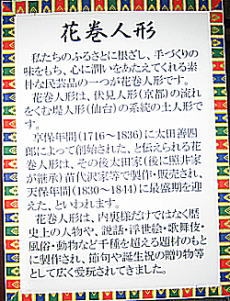 花巻人形
私たちのふるさとに根ざし、手づくりの
味をもち、心に潤いをあたえてくれる素
朴な民芸品の一つが花巻人形です。
花巻人形は、伏見人形(京都)の流れ
をくむ堤人形(仙台)の系統の土人形で
す。
享保年間(1716〜1836)に太田善四
郎によって創始された、と伝えられる花
巻人形は、その後太田家(後に照井家
が継承)苗代沢家等で製作・販売され、
天保年間(1830〜1844)に最盛期を迎
えた、といわれます。
花巻人形は、内裏雛だけではなく歴
史上の人物や、説話・浮世絵・歌舞伎・
風俗・動物など千種を超える題材のもと
に製作され、節句や誕生祝の贈り物等
として広く愛玩されてきました。